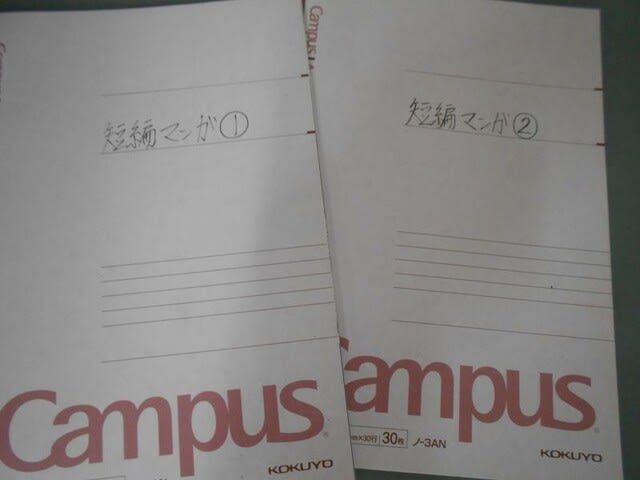 短編マンガ①
Campus
KOKUYO
Campus
短編マンガ②
Campus
×30行 30枚 ノ-3AN
KOKUYO